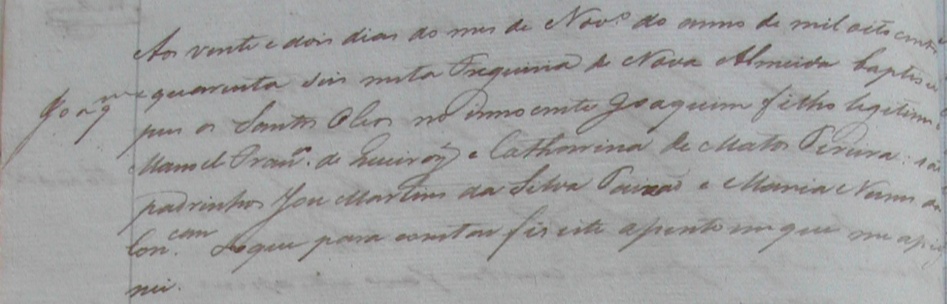 Aos vente e dois dias do mes de Nov.o do anno de mil oito cent
Joaq.m
e quarenta seis nesta Freguezia de Nova Almeida baptisei e
pus os Santos Oleos no innocente Joaquim filho legitimo
Manoel Fran.co de Queiroz e Catharina de Matos Pereira: são
padrinhos Jose Martins da Silva Paixão e Maria Nunes da
Con.cam Do que para constar fis este assento em que me assig
nei.